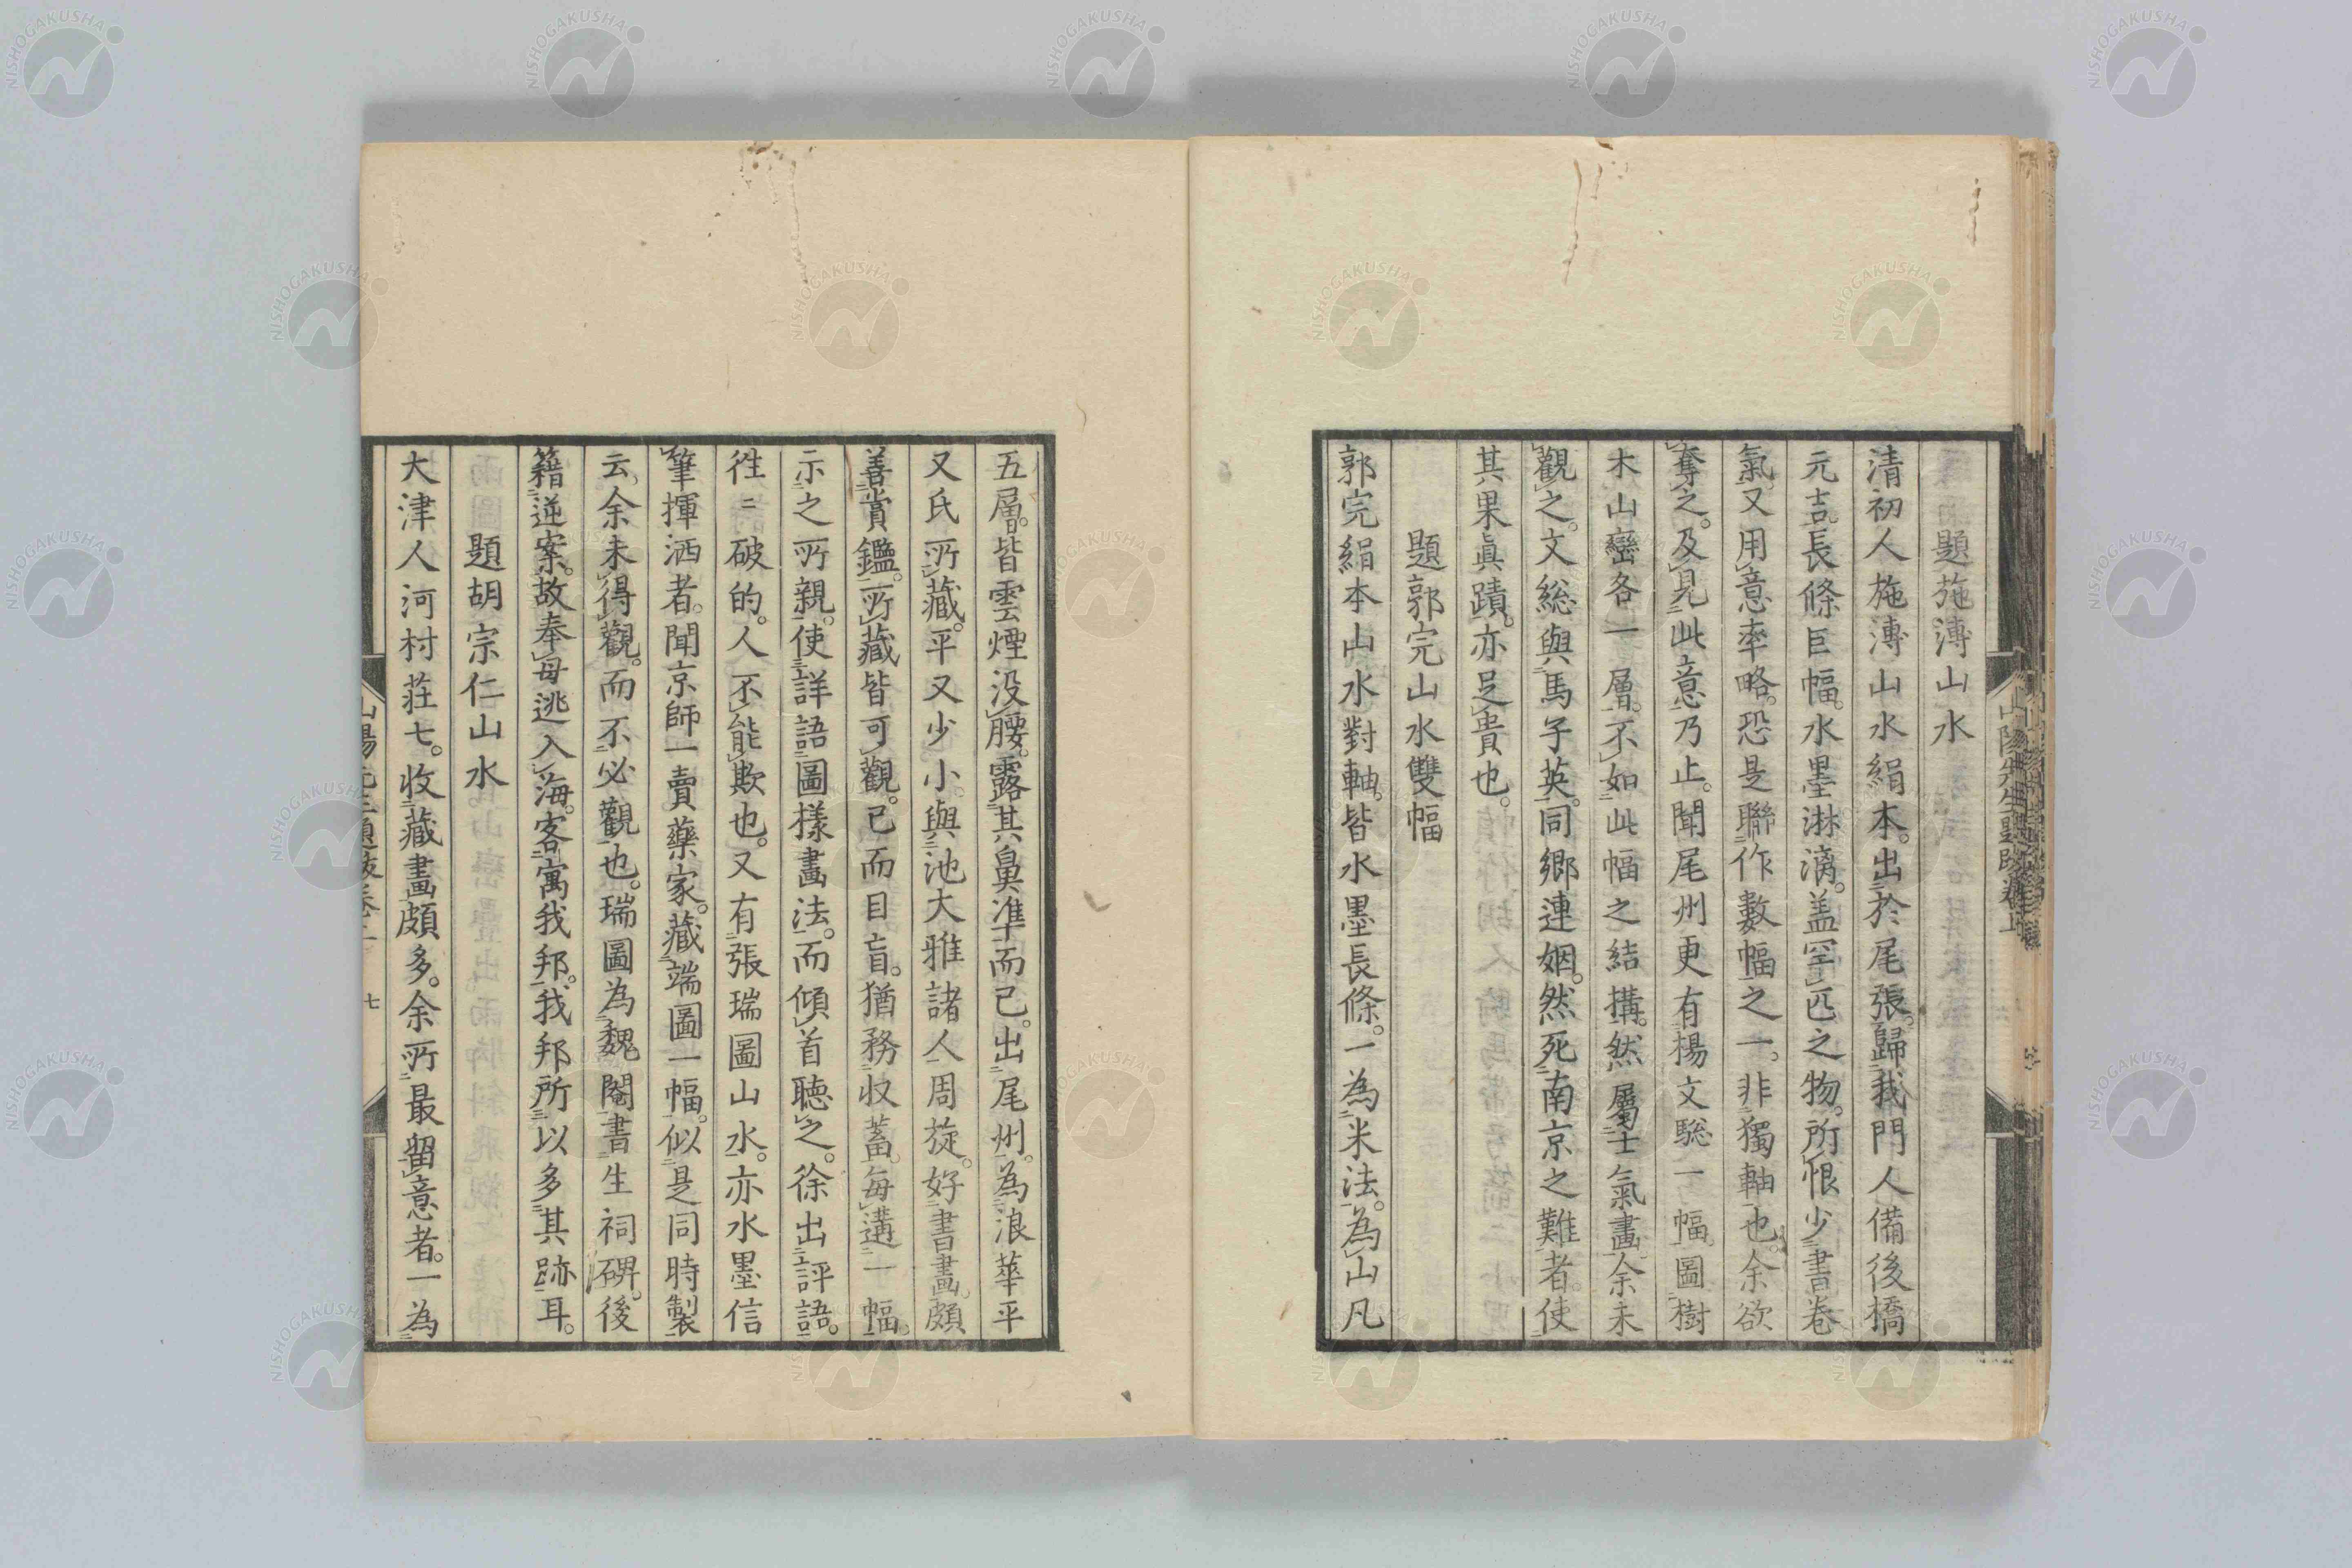 題施溥山水
清初人施溥山水絹本。出於尾張。歸我門人備後橋
元吉。長條巨幅。水墨淋漓。盖罕匹之物。所恨少書卷
氣。又用意率略。恐是聯作數幅之一。非獨軸也。余欲
奪之。及見此意乃止。聞尾州更有楊文驄一幅。圖樹
木山巒各一層。不如此幅之結搆。然屬士氣畫。余未
觀之。文総與馬子英。同鄉連姻。然死南京之難者。使
其果眞蹟。亦足貴也。
題郭完山水雙幅
郭完絹本山水對軸。皆水墨長條。一為米法。為山凡
五層。皆雲煙没腰。露其鼻準而已。出尾州。為浪華平
又氏所藏。平又少小。與池大雅諸人周旋。好書畫。頗
善賞鑑。所藏皆可觀。已而目盲。猶務收蓄。每遘一幅。
示之所親。使詳語圖樣畫法。而傾首聴之。徐出評語。
徃〻破的。人不能欺也。又有張瑞圖山水。亦水墨信
筆揮洒者。聞京師一賣藥家。藏端圖一幅。似是同時製
云。余未得觀。而不必觀也。瑞圖為魏閹書生祠碑。後
籍逆案。故奉母逃入海。客寓我邦。我邦所以多其跡耳。
題胡宗仁山水
大津人河村荘七。收藏畫頗多。余所最留意者。一為
山陽先生題跋卷上
七
NISHOGAKUSHA